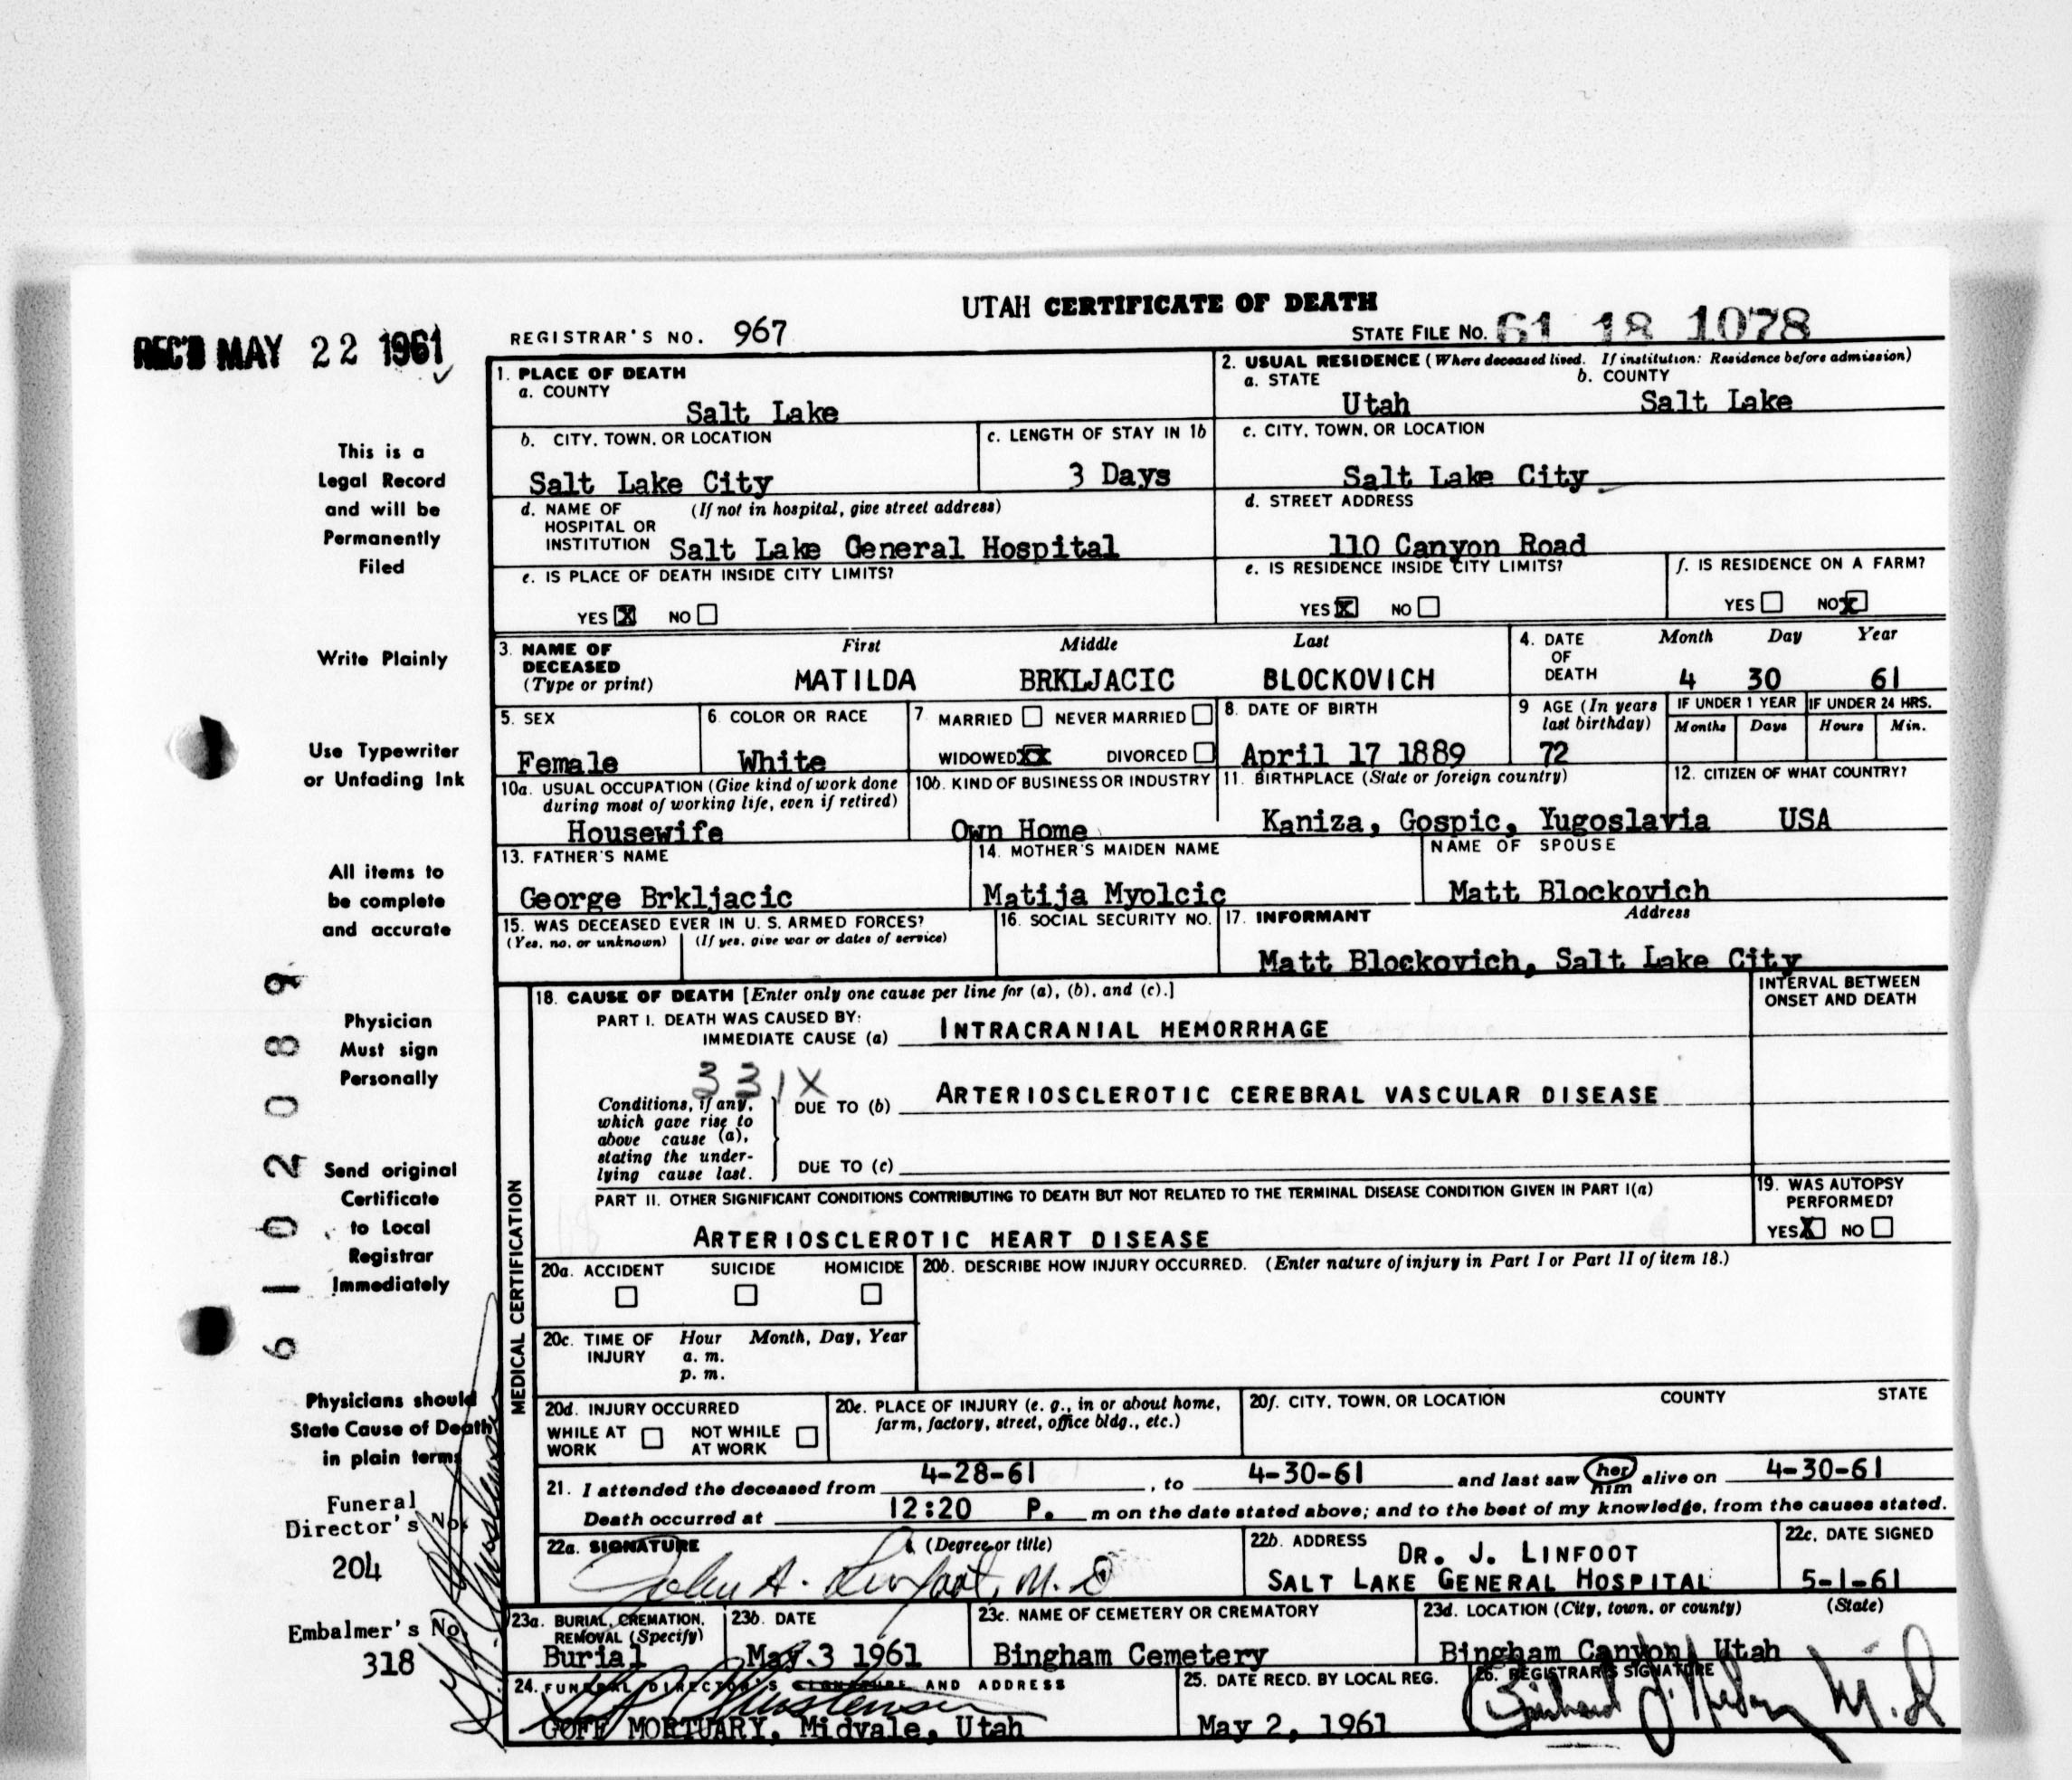 UTAH CERTIFICATE OF DEATH
REC'D MAY 22 1961
REGISTRAR'S NO. 967
STATE FILE NO. 61 18 1078
This is a
Legal Record
and will be
Permanently
Filed
Write Plainly
Use Typewriter
or Unfading Ink
All items to
be complete
and accurate
Physician
Must sign
Personally
Send original
Certificate
to Local
Registrar
Immediately
Physicians should
State Cause of Death
in plain terms
Funeral
Director's No.
204
Embalmer's No.
318
61 02089
1. PLACE OF DEATH
a. COUNTY
Salt Lake
b. CITY, TOWN, OR LOCATION
Salt Lake City
c. LENGTH OF STAY IN 1b
3 Days
d. NAME OF HOSPITAL OR INSTITUTION (If not in hospital, give street address)
Salt Lake General Hospital
e. IS PLACE OF DEATH INSIDE CITY LIMITS?
YES X NO
2. USUAL RESIDENCE (Where deceased lived. If institution: Residence before admission)
a. STATE
Utah
b. COUNTY
Salt Lake
c. CITY, TOWN, OR LOCATION
Salt Lake City
d. STREET ADDRESS
110 Canyon Road
e. IS RESIDENCE INSIDE CITY LIMITS?
YES X NO
f. IS RESIDENCE ON A FARM?
YES NO X
3. NAME OF DECEASED (Type or print)
First Middle Last
MATILDA BRKLJACIC BLOCKOVICH
4. DATE OF DEATH
Month Day Year
4 30 61
5. SEX
Female
6. COLOR OR RACE
White
7 MARRIED NEVER MARRIED
WIDOWED XX DIVORCED
8. DATE OF BIRTH
April 17 1889
9 AGE (In years last birthday)
72
IF UNDER 1 YEAR
Months Days
IF UNDER 24 HRS.
Hours Min.
10a. USUAL OCCUPATION (Give kind of work done during most of working life, even if retired)
Housewife
10b. KIND OF BUSINESS OR INDUSTRY
Own Home
11. BIRTHPLACE (State or foreign country)
Kaniza, Gospic, Yugoslavia
12. CITIZEN OF WHAT COUNTRY?
USA
13. FATHER'S NAME
George Brkljacic
14. MOTHER'S MAIDEN NAME
Matija Myolcic
NAME OF SPOUSE
Matt Blockovich
15. WAS DECEASED EVER IN U. S. ARMED FORCES?
(Yes, no, or unknown) (If yes, give war or dates of service)
16. SOCIAL SECURITY NO.
17. INFORMANT Address
Matt Blockovich, Salt Lake City
MEDICAL CERTIFICATION
18. CAUSE OF DEATH [Enter only one cause per line for (a), (b), and (c).]
INTERVAL BETWEEN ONSET AND DEATH
PART I. DEATH WAS CAUSED BY:
IMMEDIATE CAUSE (a) INTRACRANIAL HEMORRHAGE
331X
Conditions, if any, which gave rise to above cause (a), stating the underlying cause last.
DUE TO (b) ARTERIOSCLEROTIC CEREBRAL VASCULAR DISEASE
DUE TO (c)
PART II. OTHER SIGNIFICANT CONDITIONS CONTRIBUTING TO DEATH BUT NOT RELATED TO THE TERMINAL DISEASE CONDITION GIVEN IN PART I(a)
ARTERIOSCLEROTIC HEART DISEASE
19. WAS AUTOPSY PERFORMED?
YES X NO
20a. ACCIDENT SUICIDE HOMICIDE
20b. DESCRIBE HOW INJURY OCCURRED. (Enter nature of injury in Part I or Part II of item 18.)
20c. TIME OF INJURY Hour Month, Day, Year
a. m.
p. m.
20d. INJURY OCCURRED
WHILE AT WORK NOT WHILE AT WORK
20e. PLACE OF INJURY (e. g., in or about home, farm, factory, street, office bldg., etc.)
20f. CITY, TOWN, OR LOCATION COUNTY STATE
21. I attended the deceased from 4-28-61, to 4-30-61 and last saw her him alive on 4-30-61
Death occurred at 12:20 P. m on the date stated above; and to the best of my knowledge, from the causes stated.
22a. SIGNATURE (Degree or title)
John A. Linfoot, M.D
22b. ADDRESS
DR. J. LINFOOT
SALT LAKE GENERAL HOSPITAL
22c. DATE SIGNED
5-1-61
23a. BURIAL, CREMATION, REMOVAL (Specify)
Burial
23b. DATE
May 3 1961
23c. NAME OF CEMETERY OR CREMATORY
Bingham Cemetery
23d. LOCATION (City, town, or county) (State)
Bingham Canyon, Utah
24. FUNERAL DIRECTOR'S SIGNATURE AND ADDRESS
GOFF MORTUARY, Midvale, Utah
25. DATE RECD. BY LOCAL REG.
May 2, 1961
26. REGISTRAR'S SIGNATURE